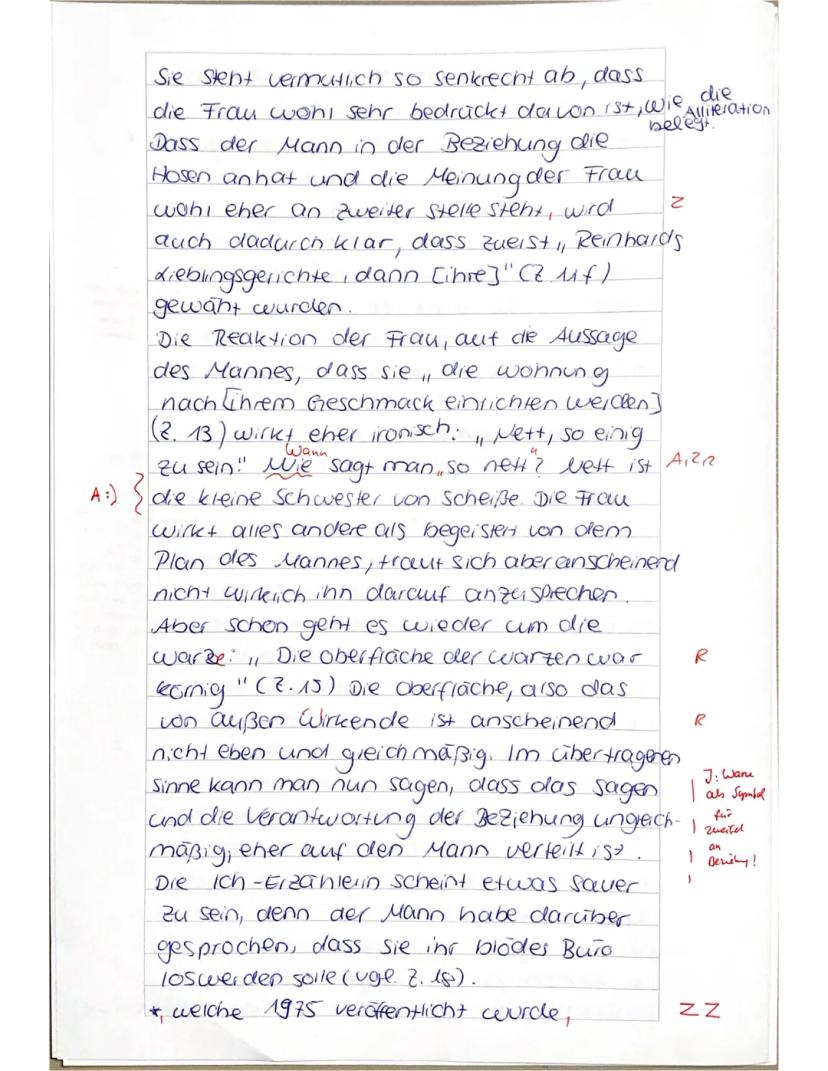 Sie steht vermutlich so senkrecht ab, dass
die Frau wohl sehr bedrückt davon ist, wie die Alliteration belegt.
Dass der Mann in der Beziehung die
Hosen anhat und die Meinung der Frau
wohl eher an zweiter Stelle steht, wird Z
auch dadurch klar, dass zuerst „Reinhards
Lieblingsgerichte, dann [ihre]" (Z. 11f)
gewäht wurden.
Die Reaktion der Frau, auf die Aussage
des Mannes, dass sie „die Wohnung
nach [ihrem Geschmack einrichten werden]
(Z. 13) wirkt eher ironisch: „Nett, so einig
Wann
zu sein." Wie sagt man „so nett"? Nett ist A, Z, R
A:) die kleine Schwester von Scheiße. Die Frau
wirkt alles andere als begeistert von dem
Plan des Mannes, traut sich aber anscheinend
nicht wirklich ihn darauf anzusprechen.
Aber schon geht es wieder um die
Warze: „Die Oberfläche der Warzen war R
körnig" (Z. 15) Die Oberfläche, also das
von außen Wirkende ist anscheinend R
nicht eben und gleichmäßig. Im übertragenen
Sinne kann man nun sagen, dass das Sagen
und die Verantwortung der Beziehung ungleich-
mäßig, eher auf den Mann verteilt ist.
J: Warze
als Symbol
für
Zweifel
an
Beziehung!
Die Ich-Erzählerin scheint etwas sauer
zu sein, denn der Mann habe darüber
gesprochen, dass sie ihr blödes Büro
loswerden solle (vgl. Z. 18).
*, welche 1975 veröffentlicht wurde, ZZ